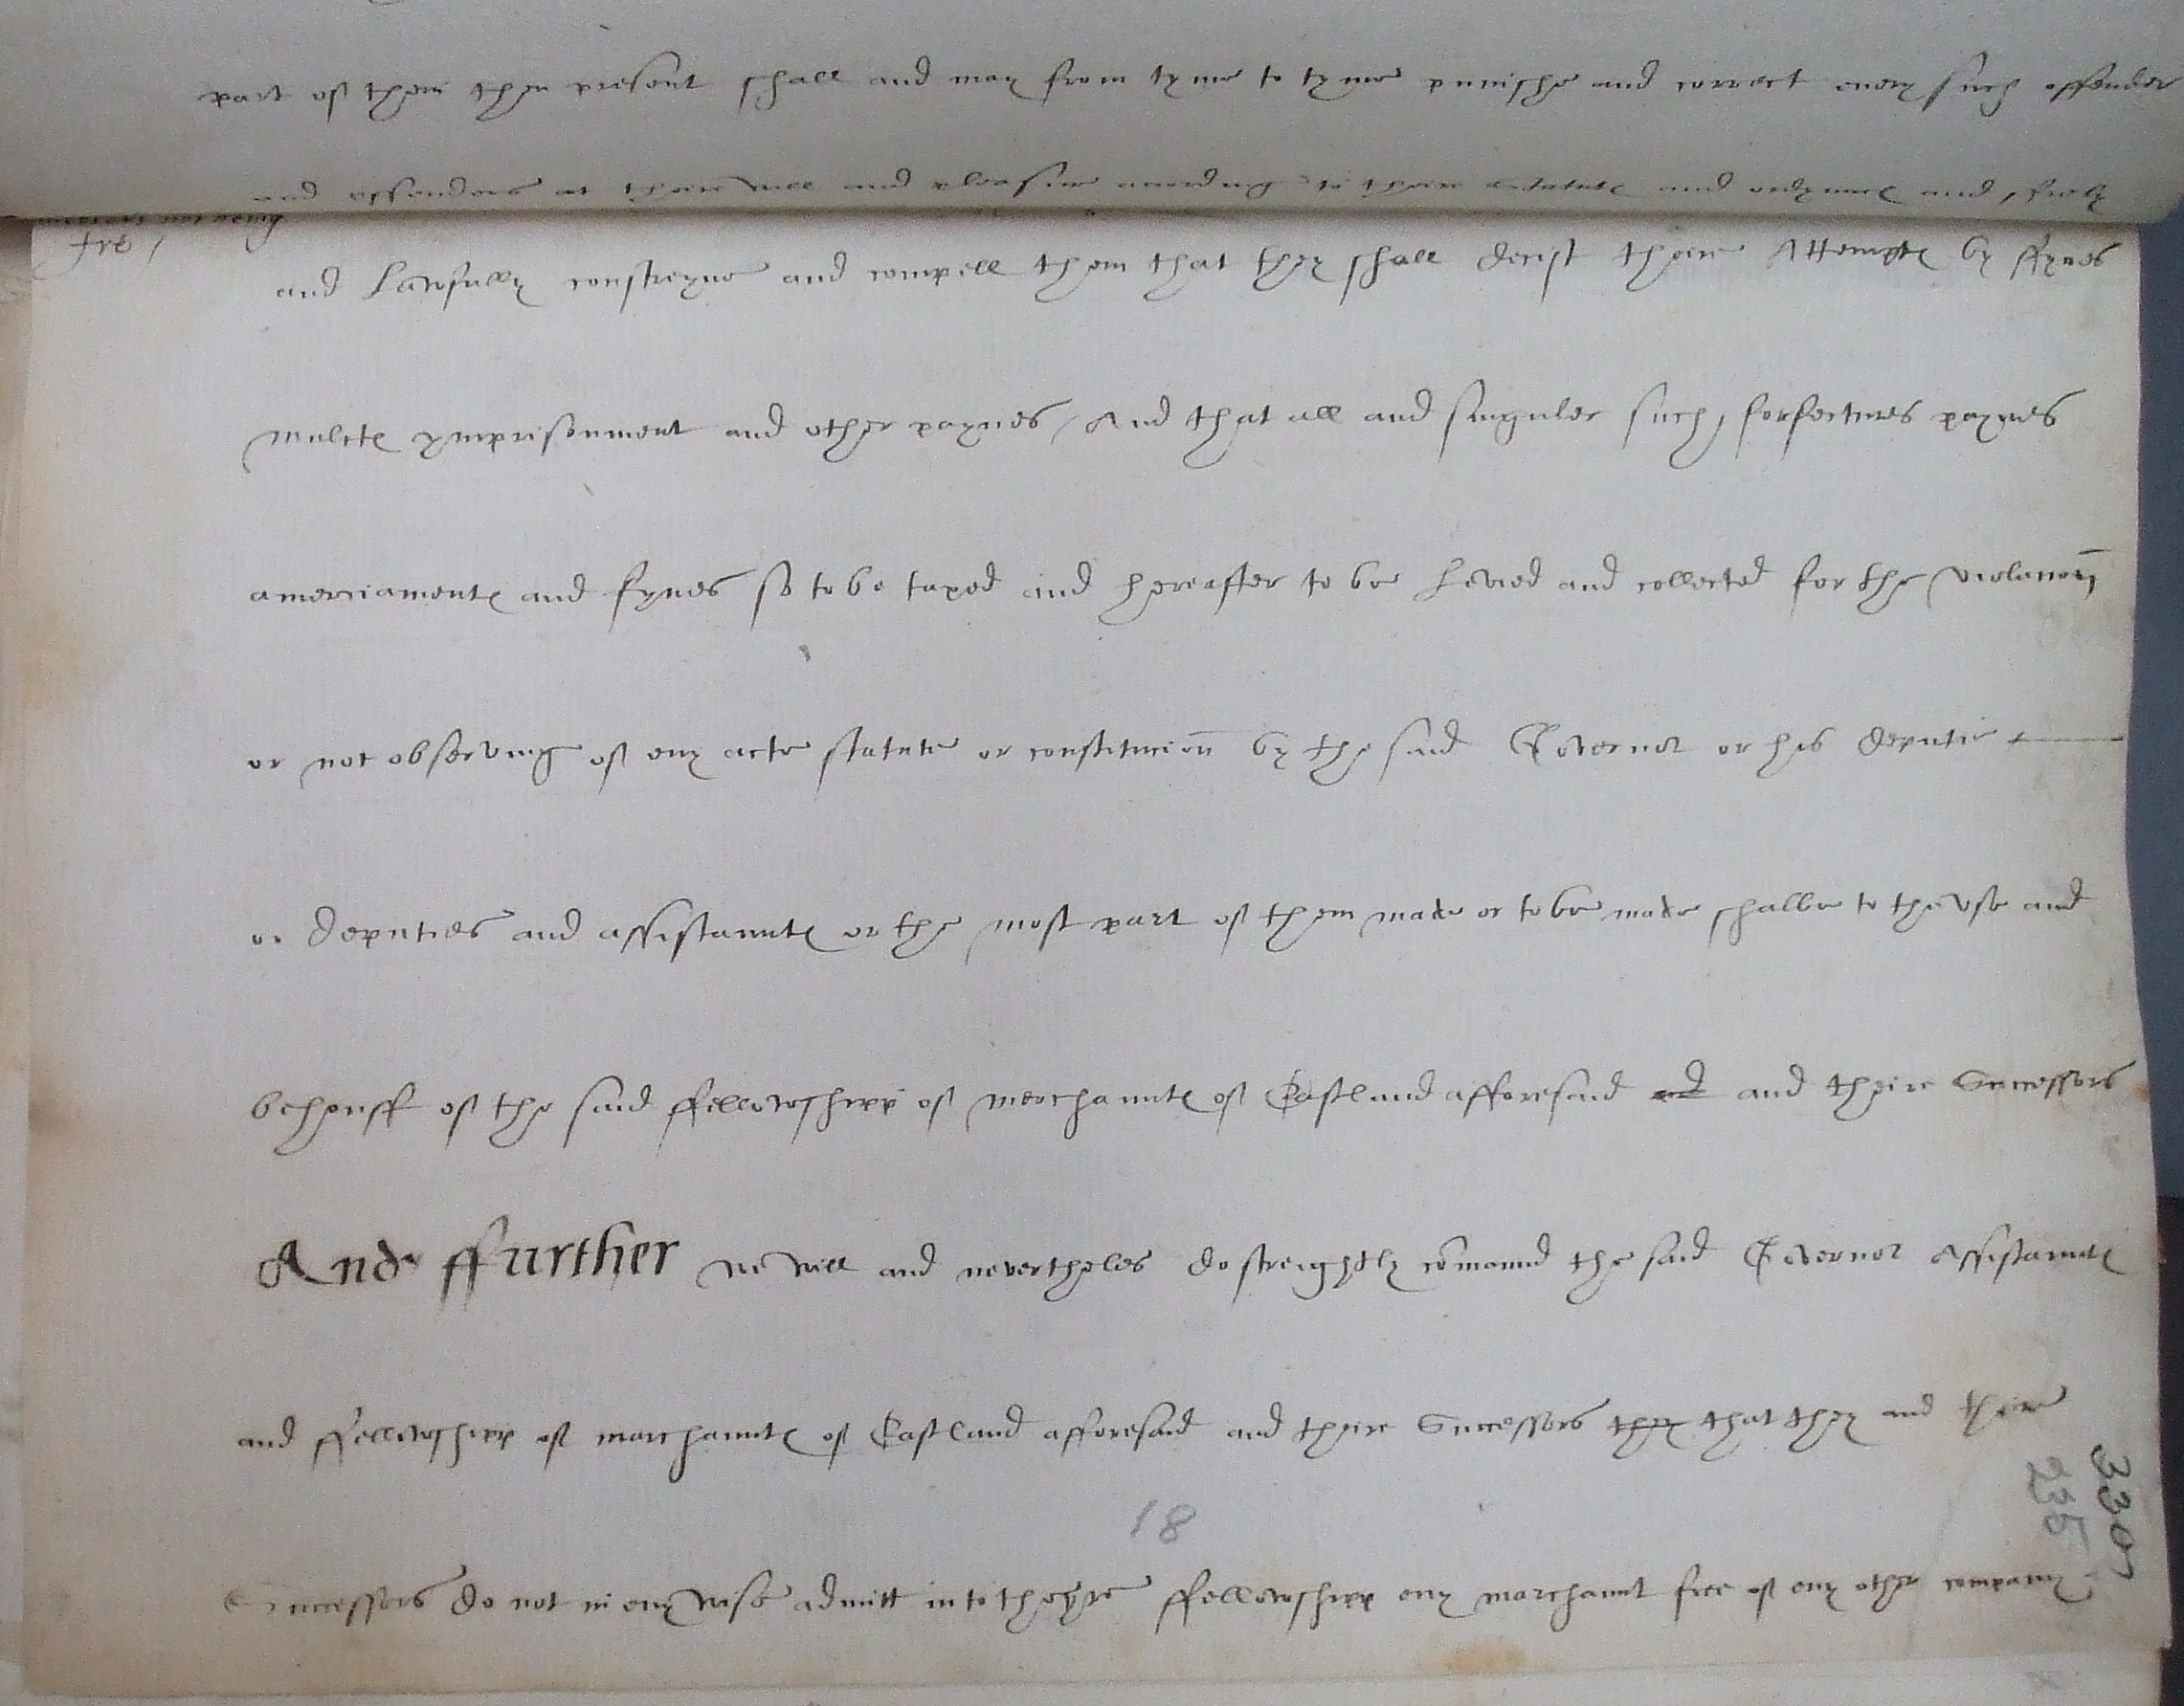 part of them then present shall and may from tyme to tyme punishe and correct every such offender
and offendors at theire will and pleasure according to theire statute and ordynance and, frely
not being
fre /
and Lawfully constreyne and compell them that they shall desist theire Attempte by ffynes
mulcte ymprisonment and other paynes / And that all and singuler such, forfectures paynes
amerciamente and fynes so to be taxed and hereafter to be Levied and collected for the violacion
or not observing of eny acte statute or constitucion by the said Governor or his deputie
or deputies and assistaunte or the most part of them made or to be made shalbe to the use and
behouff of the said ffellowshipp of merchaunte of Eastland afforesaid and and theire Successors
And ffurther we will and nevertheles do streightly comaund the said Governor Assistaunte
and ffellowshipp of marchaunte of Eastland afforesaid and theire Successors they that they and theire
18
Successors do not in eny wise admitt into theyre ffellowshipp eny marchaunt free of eny other company
3307
235